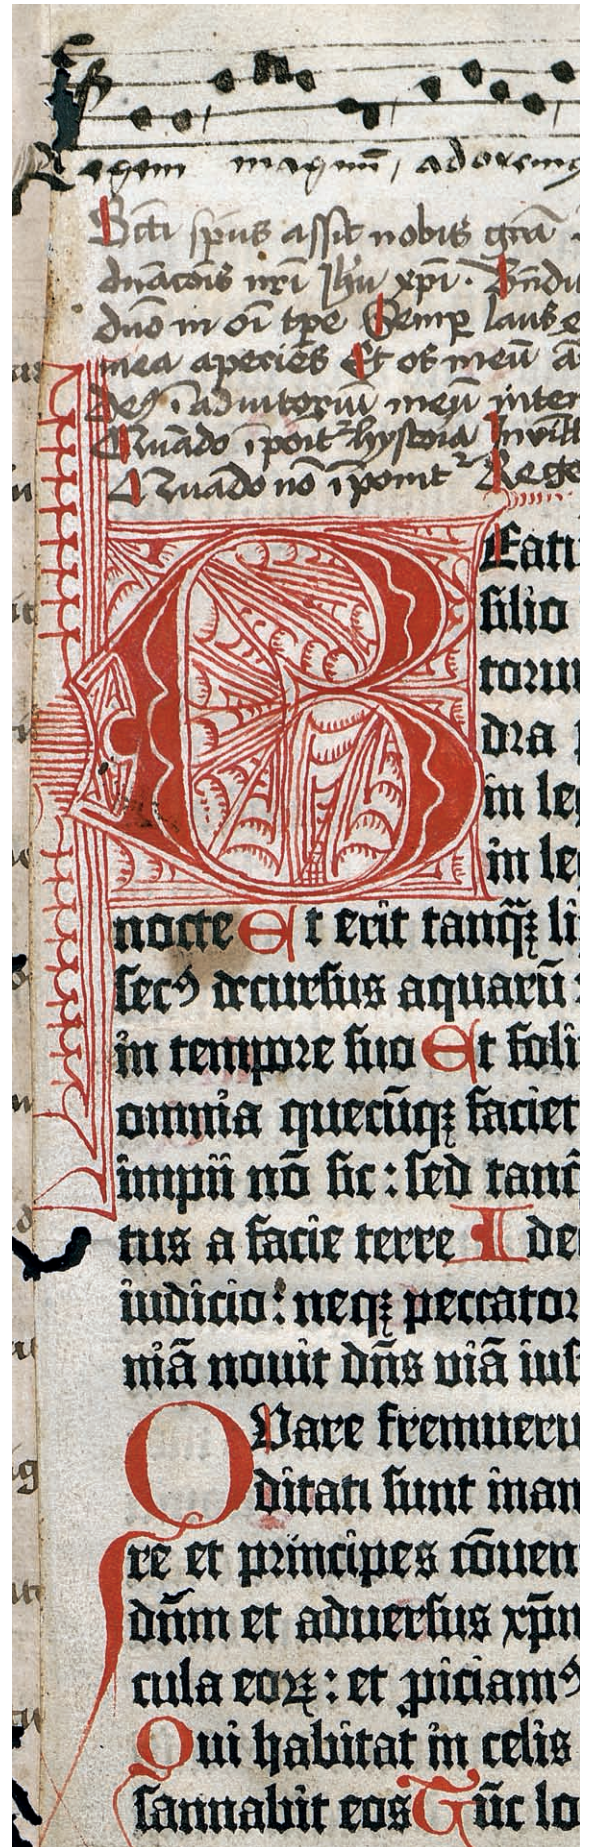 Regem magnū adoremus
Scti spūs assit nobis grā
dnācōis nrī Jhū xpī. Bndi
dno in oī tpe Semp laus e
mea apecies Et os meū a
Deꝰ ī adiutoriū meū inten
Quādo īponit hystoria Invit
Quādo nō īponit Rege
BEati
filio
torum
dra p
in leg
in leg
nocte Et erit tanq̄ꝫ li
secꝰ decursus aquarū :
in tempore suo Et foli
omnia quecūqꝫ faciet
impii nō sic : sed tanq̄
tus a facie terre Ide
iudicio : neqꝫ peccator
niā novit dn̄s viā ius
QUare fremueru
ditati sunt inan
re et principes cōuen
dn̄m et aduersus xp̄m
cula eoꝝ : et ꝓiciamꝰ
Qui habitat in celis
sannabit eos Tūc lo